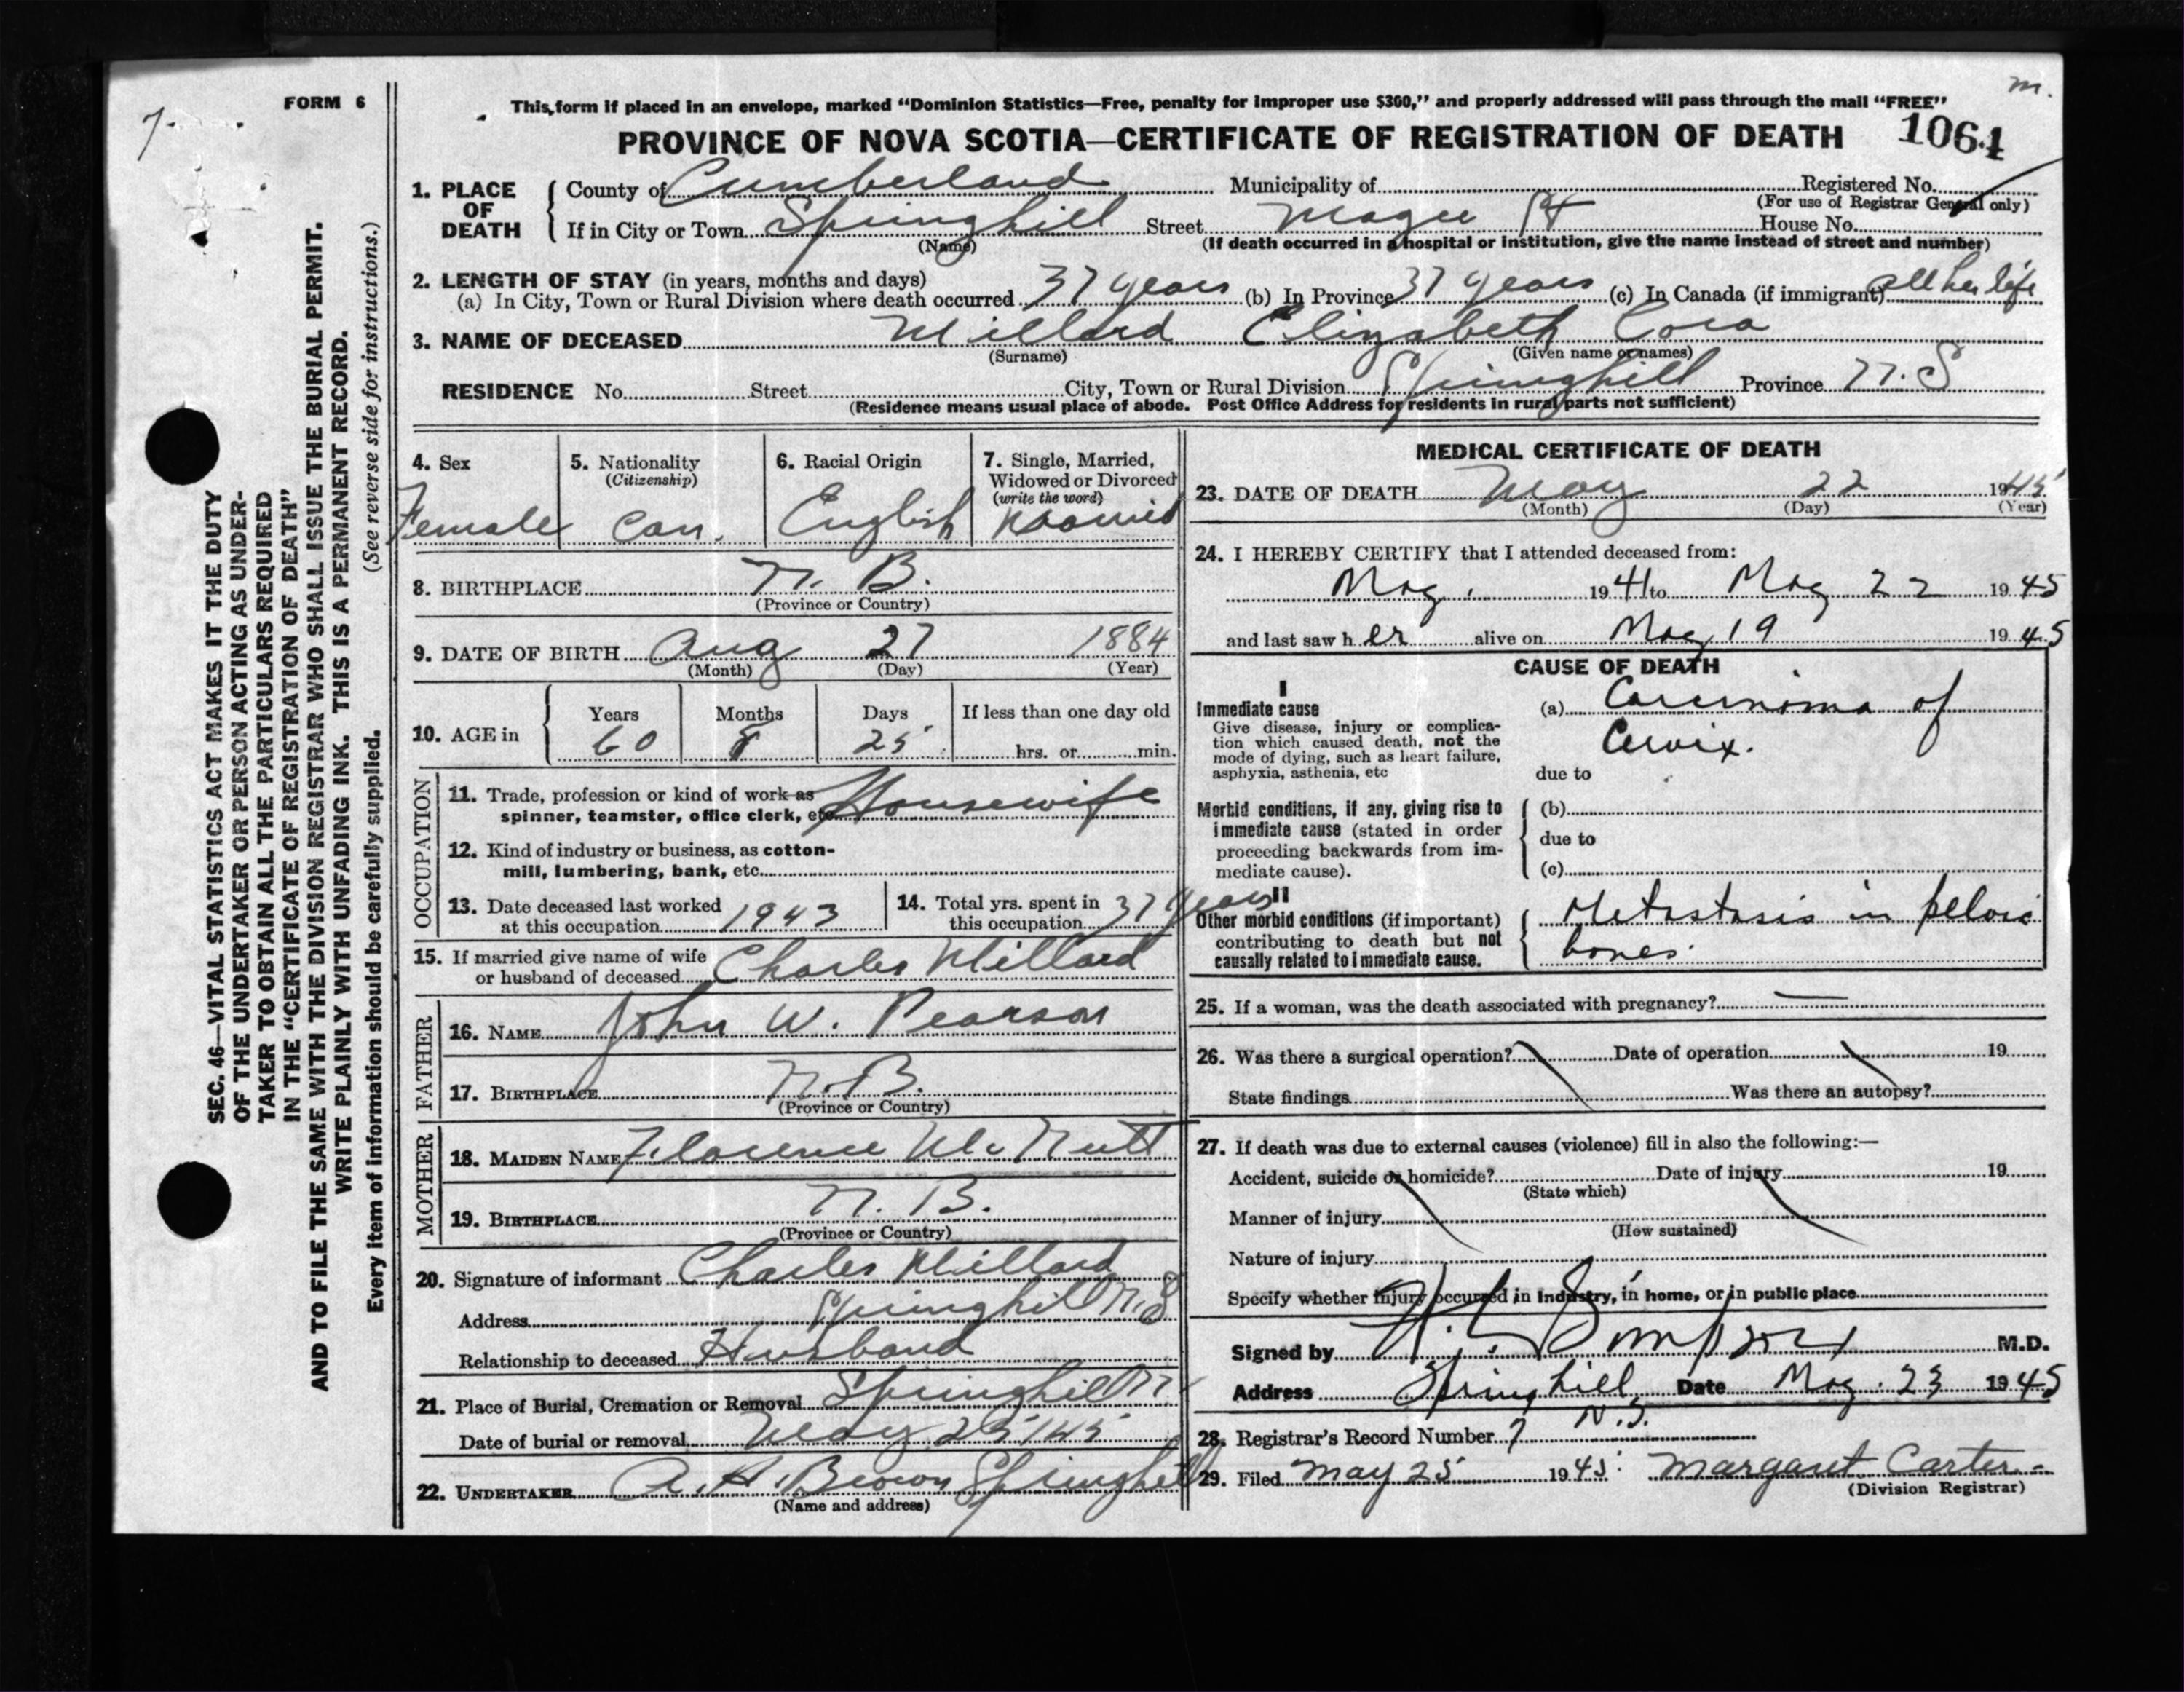 m.
7.
FORM 6
This form if placed in an envelope, marked "Dominion Statistics—Free, penalty for improper use $300," and properly addressed will pass through the mail "FREE"
PROVINCE OF NOVA SCOTIA—CERTIFICATE OF REGISTRATION OF DEATH 1064
1. PLACE OF DEATH
County of Cumberland Municipality of Registered No.
(For use of Registrar General only)
If in City or Town Springhill Street Magee St House No.
(Name) (If death occurred in a hospital or institution, give the name instead of street and number)
2. LENGTH OF STAY (in years, months and days)
(a) In City, Town or Rural Division where death occurred 37 years (b) In Province 37 years (c) In Canada (if immigrant) all her life
3. NAME OF DECEASED Millard Elizabeth Cora
(Surname) (Given name or names)
RESIDENCE No. Street City, Town or Rural Division Springhill Province N.S
(Residence means usual place of abode. Post Office Address for residents in rural parts not sufficient)
4. Sex
Female
5. Nationality
(Citizenship)
Can.
6. Racial Origin
English
7. Single, Married,
Widowed or Divorced
(write the word)
8. BIRTHPLACE N. B.
(Province or Country)
9. DATE OF BIRTH Aug 27 1884
(Month) (Day) (Year)
10. AGE in
Years Months Days If less than one day old
60 8 25 hrs. or min.
OCCUPATION
11. Trade, profession or kind of work as
spinner, teamster, office clerk, etc. Housewife
12. Kind of industry or business, as cotton-
mill, lumbering, bank, etc.
13. Date deceased last worked
at this occupation 1943
14. Total yrs. spent in
this occupation 37 years
15. If married give name of wife
or husband of deceased Charles Millard
FATHER
16. NAME John W. Pearson
17. BIRTHPLACE N. B.
(Province or Country)
MOTHER
18. MAIDEN NAME Florence McNutt
19. BIRTHPLACE N. B.
(Province or Country)
20. Signature of informant Charles Millard
Address Springhill N.S
Relationship to deceased Husband
21. Place of Burial, Cremation or Removal Springhill N.
Date of burial or removal May 25/45
22. UNDERTAKER A. H. Brown Springhill
(Name and address)
MEDICAL CERTIFICATE OF DEATH
23. DATE OF DEATH May 22 1945
(Month) (Day) (Year)
24. I HEREBY CERTIFY that I attended deceased from:
May 1941 to May 22 1945
and last saw her alive on May 19 1945
CAUSE OF DEATH
I
Immediate cause
Give disease, injury or complica-
tion which caused death, not the
mode of dying, such as heart failure,
asphyxia, asthenia, etc
(a) Carcinoma of
Cervix.
due to
Morbid conditions, if any, giving rise to
immediate cause (stated in order
proceeding backwards from im-
mediate cause).
(b)
due to
(c)
II
Other morbid conditions (if important)
contributing to death but not
causally related to immediate cause.
Metastasis in pelvic
bones.
25. If a woman, was the death associated with pregnancy? —
26. Was there a surgical operation? Date of operation 19
State findings Was there an autopsy?
27. If death was due to external causes (violence) fill in also the following:—
Accident, suicide or homicide? Date of injury 19
(State which)
Manner of injury
(How sustained)
Nature of injury
Specify whether injury occurred in industry, in home, or in public place
Signed by M.D.
Address Springhill, Date May. 23 1945
N.S.
28. Registrar's Record Number 7
29. Filed May 25 1945. Margaret Carter-
(Division Registrar)
SEC. 46—VITAL STATISTICS ACT MAKES IT THE DUTY
OF THE UNDERTAKER OR PERSON ACTING AS UNDER-
TAKER TO OBTAIN ALL THE PARTICULARS REQUIRED
IN THE "CERTIFICATE OF REGISTRATION OF DEATH"
AND TO FILE THE SAME WITH THE DIVISION REGISTRAR WHO SHALL ISSUE THE BURIAL PERMIT.
WRITE PLAINLY WITH UNFADING INK. THIS IS A PERMANENT RECORD.
Every item of information should be carefully supplied. (See reverse side for instructions.)